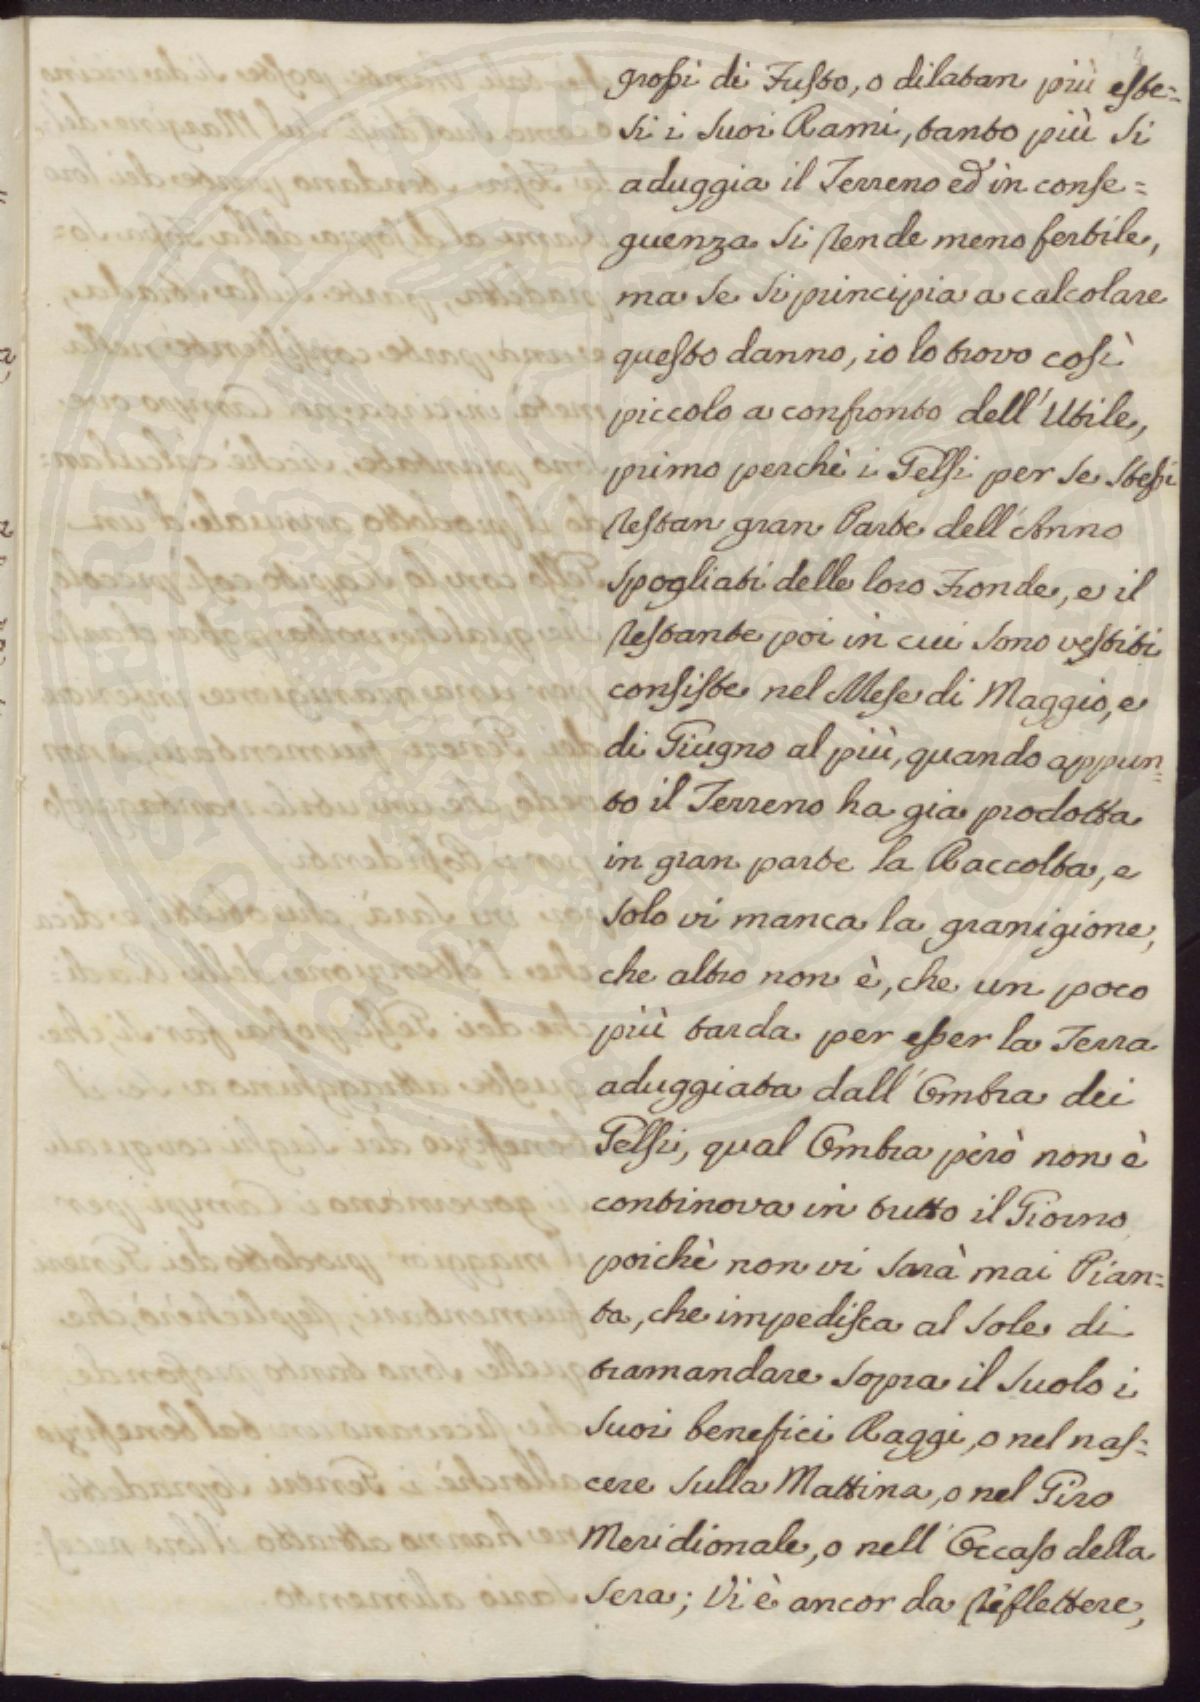 grossi di Fusto, o dilatan più este=
si i suoi Rami, tanto più si
aduggia il Terreno ed in conse=
guenza si rende meno fertile,
ma se si principia a calcolare
questo danno, io lo trovo così
piccolo a confronto dell'Utile,
primo perchè i Gelsi per se stessi
restan gran Parte dell'Anno
spogliati delle loro Fronde, e il
restante poi in cui sono vestiti
consiste nel Mese di Maggio, e
di Giugno al più, quando appun=
to il Terreno ha gia prodotta
in gran parte la Raccolta, e
solo vi manca la granigione,
che altro non è, che un poco
più tarda per esser la Terra
aduggiata dall'Ombra dei
Gelsi, qual Ombra però non è
continova in tutto il Giorno
poichè non vi sarà mai Pian=
ta, che impedisca al Sole di
tramandare sopra il Suolo i
suoi benefici Raggi, o nel nas=
cere sulla Mattina, o nel Giro
Meridionale, o nell'Occaso della
Sera; Vi è ancor da riflettere,